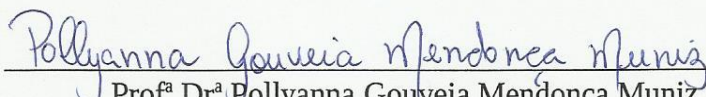 Pollyanna Gouveia Mendonça Muniz
Profª Drª Pollyanna Gouveia Mendonça Muniz